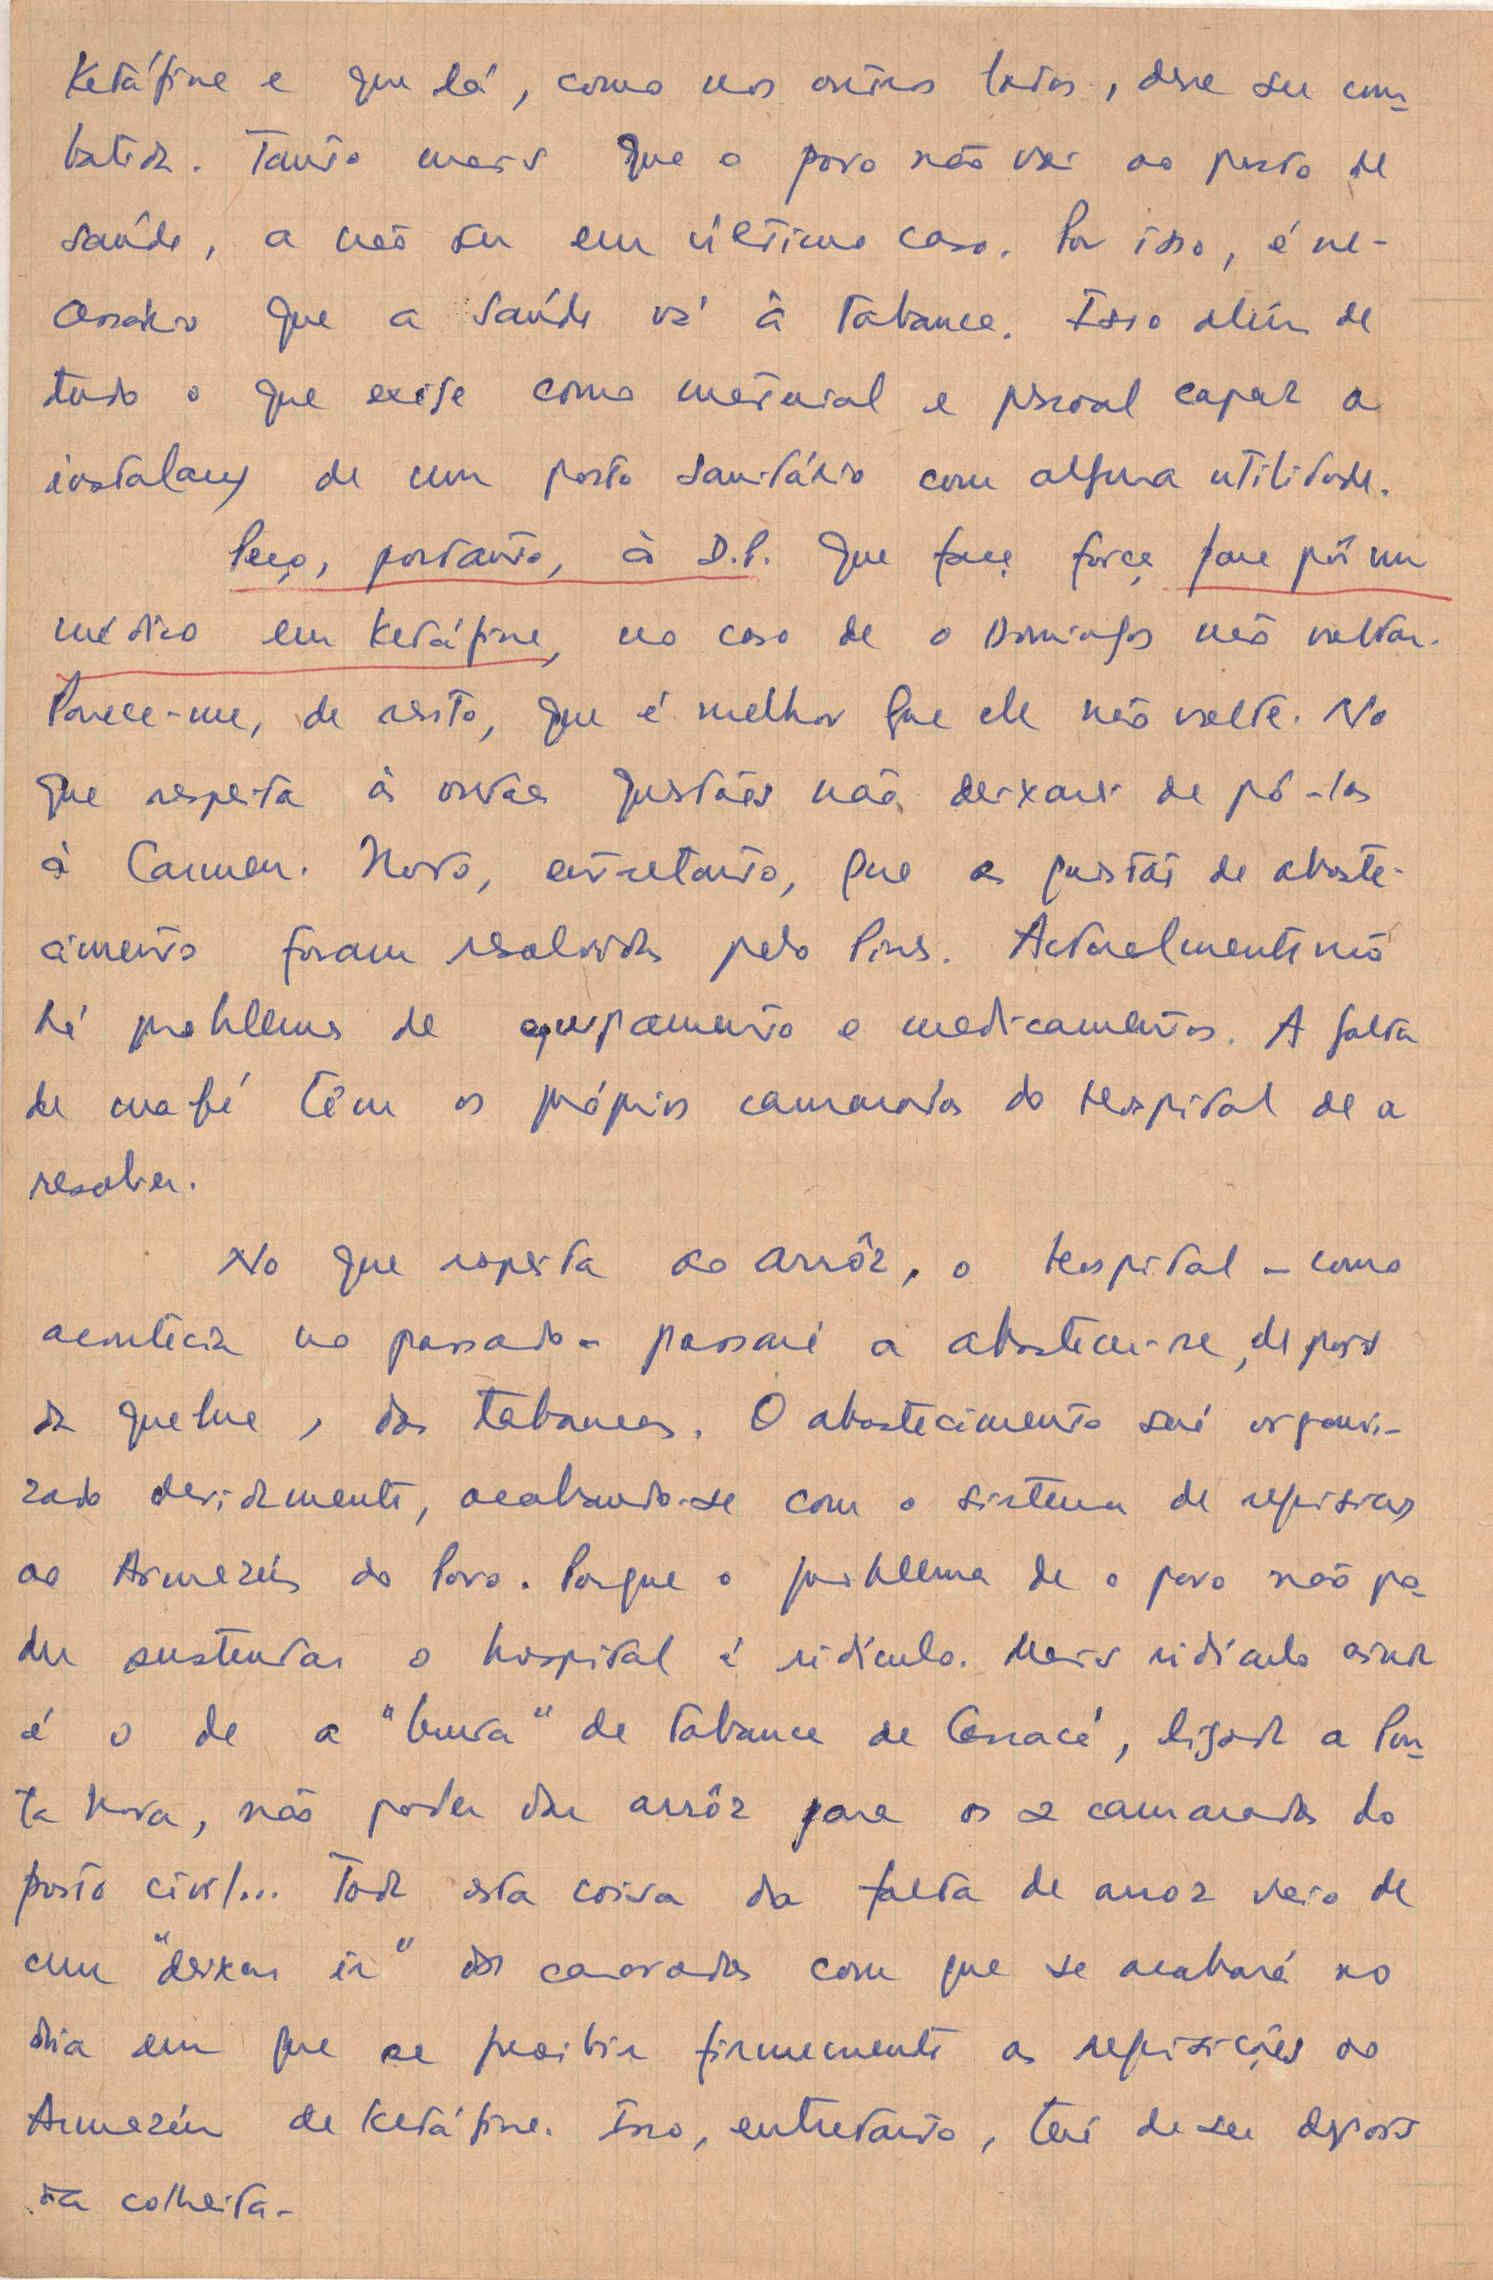 Ketáfine e que lá, como nos outros lados, deve ser com-
batida. Tanto mais que o povo não vai ao posto de
saúde, a não ser em último caso. Por isso, é ne-
cessário que a saúde vá à tabanca. Isso além de
tudo o que exige como material e pessoal capaz a
instalação de um posto sanitário com alguma utilidade.
Peço, portanto, à D.P. que faça força para pôr um
médico em Ketáfine, no caso de o Domingos não voltar.
Parece-me, de resto, que é melhor que ele não volte. No
que respeita às outras questões não deixarei de pô-las
à Carmen. Noto, entretanto, que as questões de abaste-
cimento foram resolvidas pelo Pires. Actualmente não
há problemas de equipamento e medicamentos. A falta
de mafé têm os próprios camaradas do hospital de a
resolver.
No que respeita ao arrôz, o hospital - como
acontecia no passado - passará a abastecer-se, depois
da quebra, das tabancas. O abastecimento será organi-
zado devidamente, acabando-se com o sistema de requisições
ao Armazém do Povo. Porque o problema de o povo não po-
der sustentar o hospital é ridículo. Mais ridículo ainda
é o de a "bura" de tabanca de Cassacá, ligada a Pon-
ta Nova, não poder dar arrôz para os 2 camaradas do
posto civil... Toda esta coisa da falta de arroz veio de
um "deixar ir" dos camaradas com que se acabará no
dia em que se proibir firmemente as requisições ao
Armazém de Ketáfine. Isso, entretanto, terá de ser depois
da colheita-